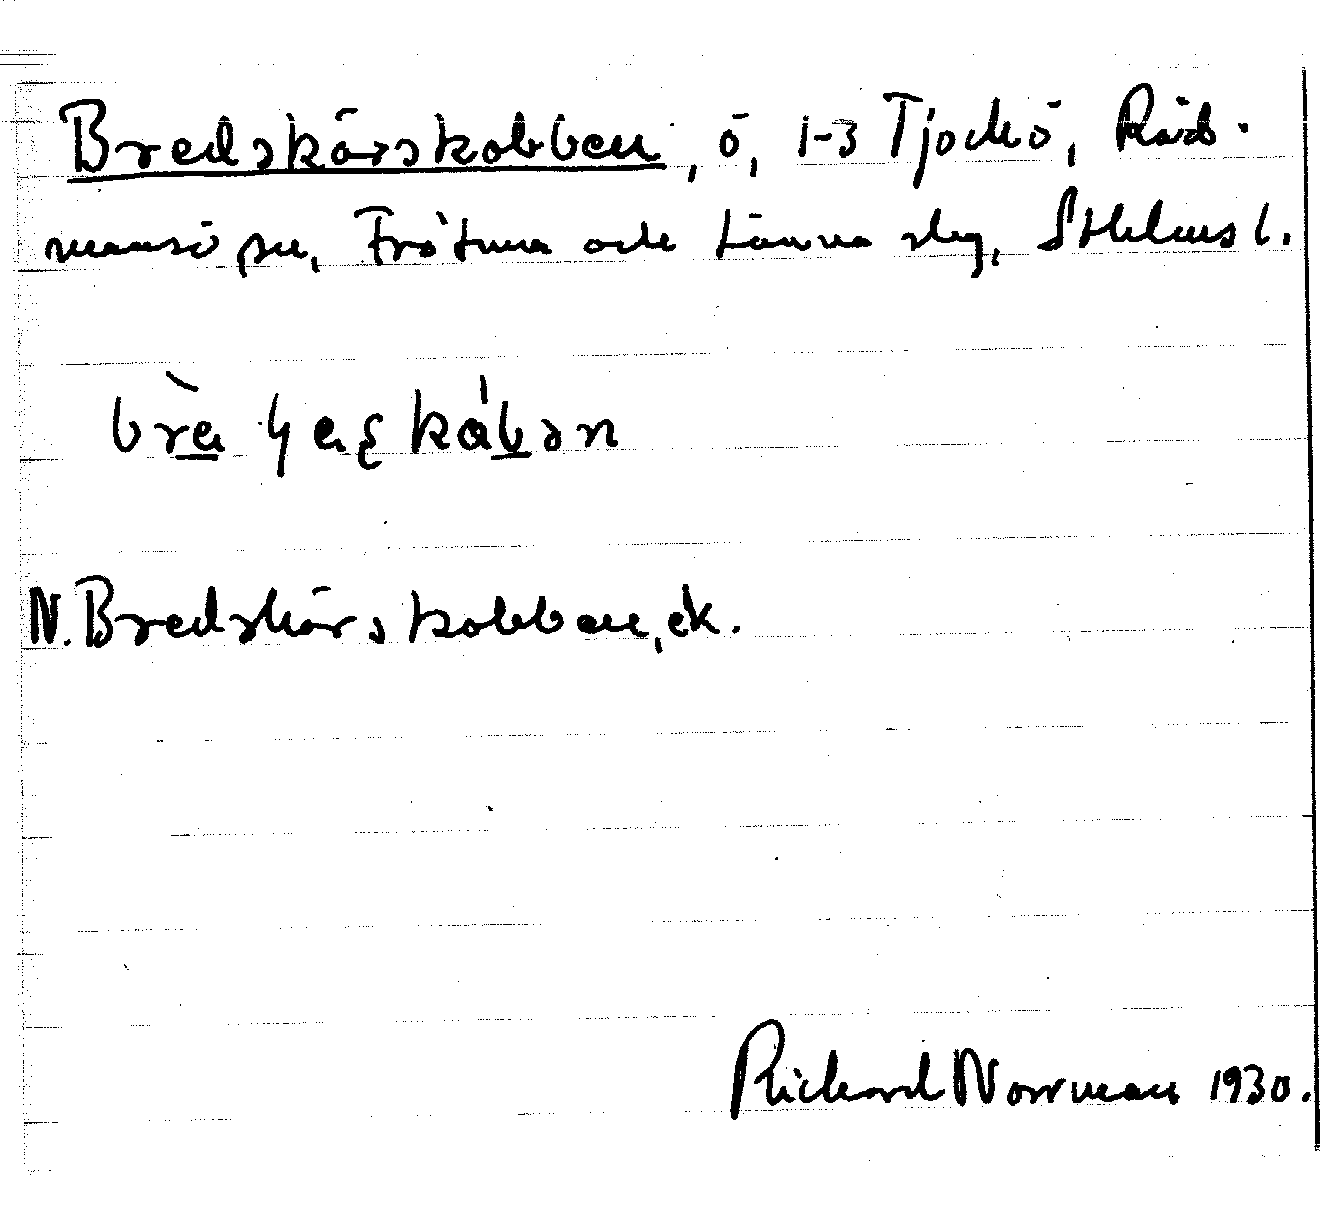 Bredskärskobben, ö, 1-3 Tjockö, Råd-
mansö sn, Frötuna och Länna slg, Sthlms l.
N. Bredskärskobben, ek.
Rickard Norrman 1930.